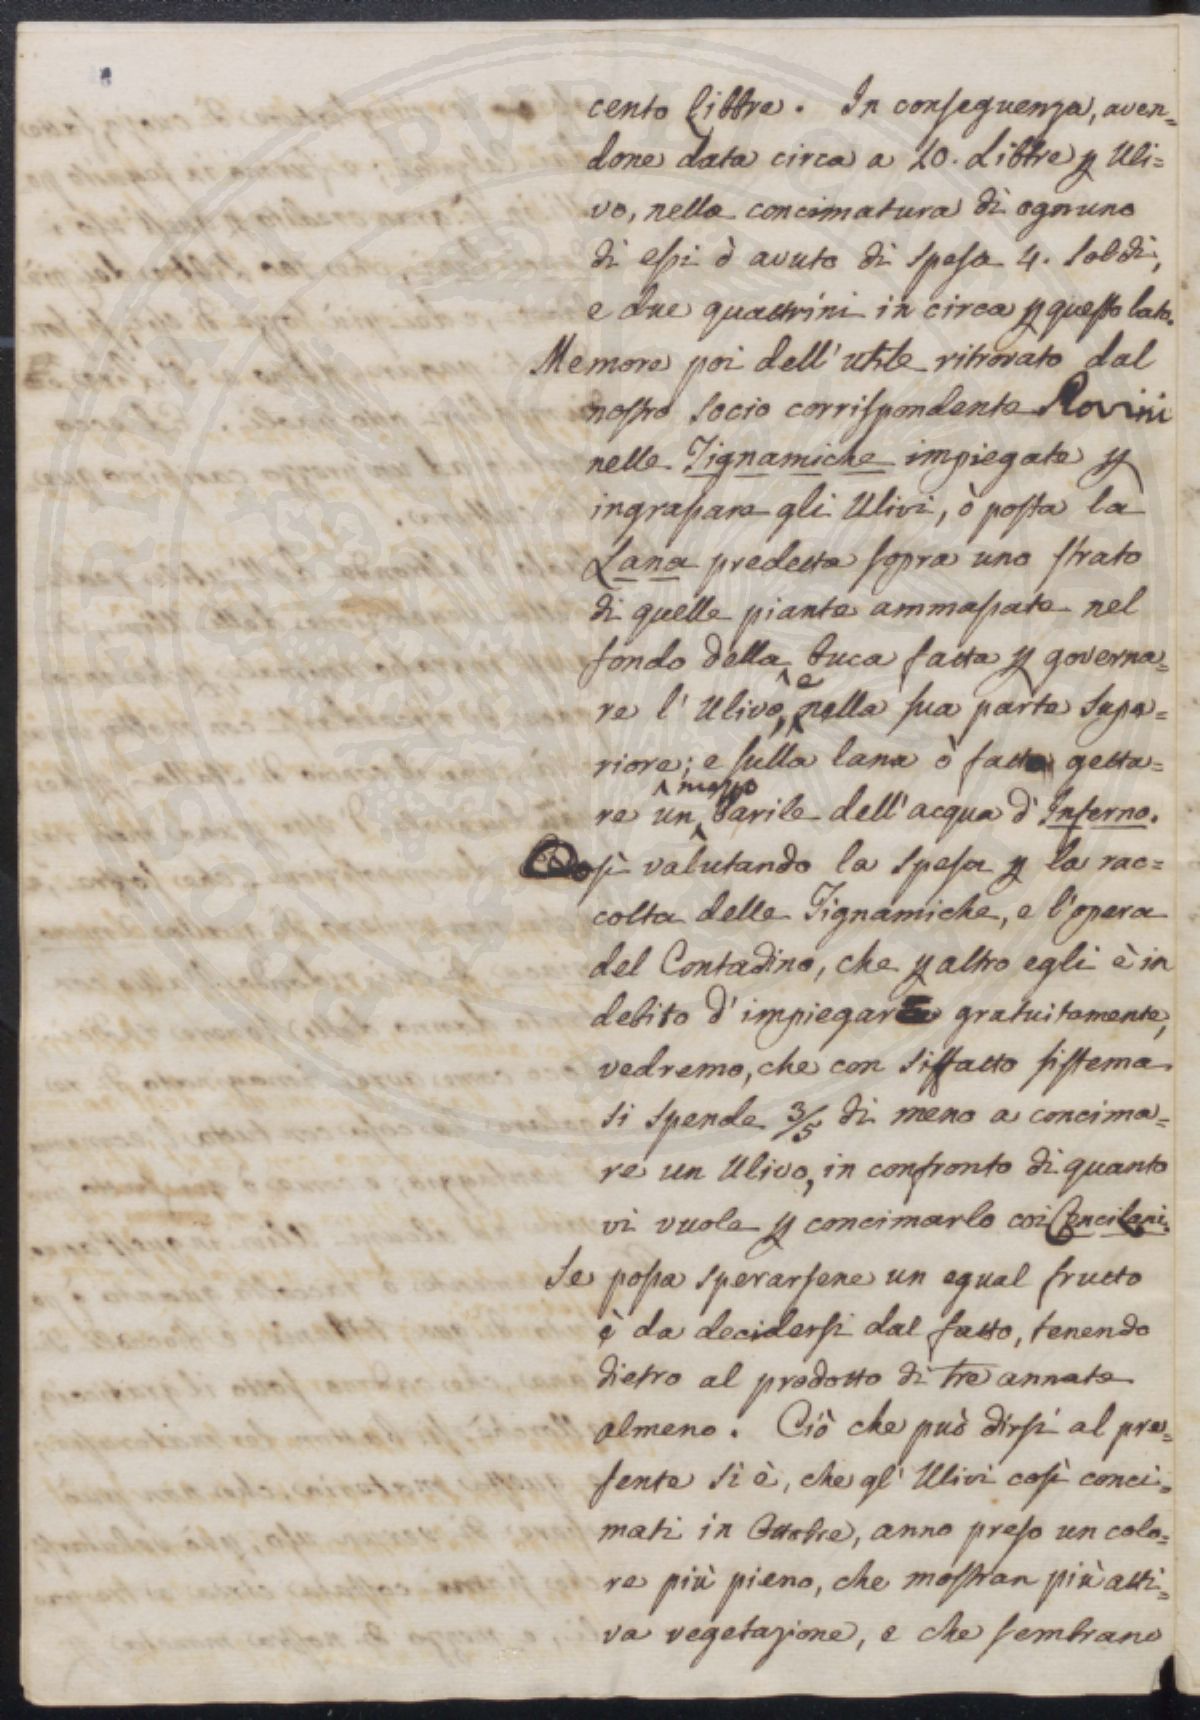 cento libbre. In conseguenza, aven=
done data circa a 20. Libbre p Uli=
vo, nella concimatura di ognuno
di essi ò avuto di spesa 4. soldi,
e due quattrini in circa p questo lato.
Memore poi dell'utile ritrovato dal
nostro socio corrispondente Rovini
nelle Tignamiche impiegate p
ingrassare gli Ulivi, ò posta la
Lana predetta sopra uno strato
di quelle piante ammassate nel
fondo della buca fatta p governa=
re l'Ulivo, e nella sua parte supe=
riore; e sulla lana ò fatto getta=
re un mezzo barile dell'acqua d'Inferno.
Così valutando la spesa p la rac=
colta delle Tignamiche, e l'opera
del Contadino, che p altro egli è in
debito d'impiegare gratuitamente,
vedremo, che con siffatto sistema
si spende 3/5 di meno a concima=
re un Ulivo, in confronto di quanto
vi vuole p concimarlo coi Cencilani.
Se possa sperarsene un egual frutto
è da decidersi dal fatto, tenendo
dietro al prodotto di tre annate
almeno. Ciò che può dirsi al pre=
sente si è, che gl'Ulivi così conci=
mati in Ottobre, anno preso un colo=
re più pieno, che mostran più atti=
va vegetazione, e che sembrano